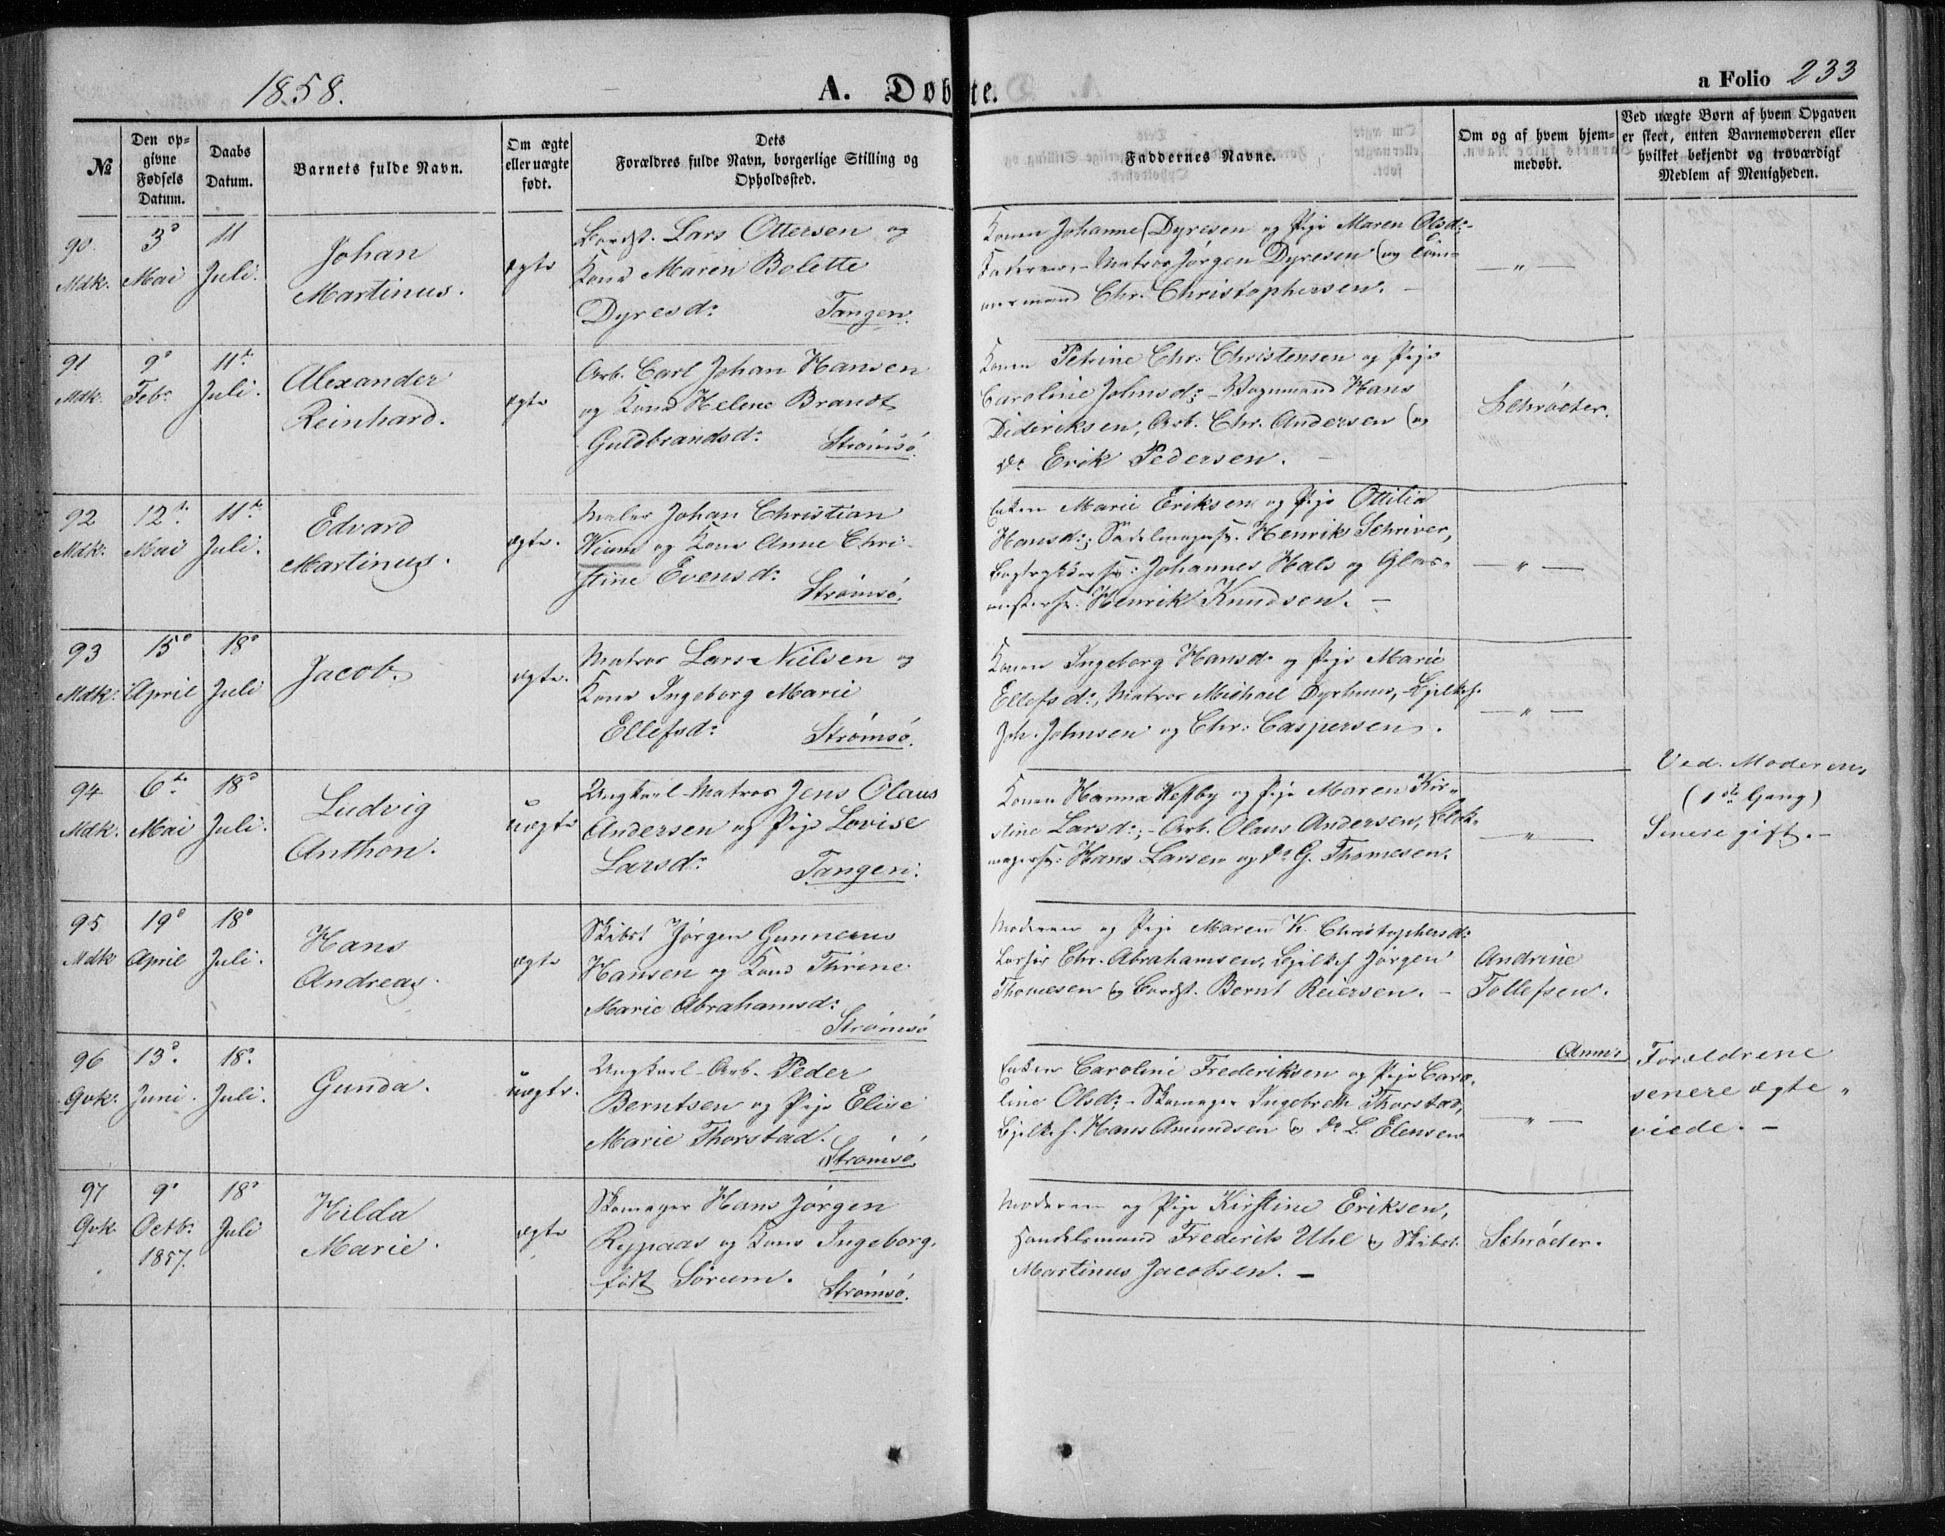 1858.
A. Døbte.
a Folio 233
№
Den opgivne Fødsels Datum.
Daabs Datum.
Barnets fulde Navn.
Om ægte eller uægte født.
Dets Forældres fulde Navn, borgerlige Stilling og Opholdssted.
Faddernes Navne.
Om og af hvem hjemmedøbt.
Ved uægte Børn af hvem Opgaven er skeet, enten Barnemoderen eller hvilket bekjendt og troværdigt Medlem af Menigheden.
90.
Mdk.
3die
Mai
11
Juli.
Johan
Martinus.
ægte
Lars Ottersen og
Kone Maren Bolette
Dyresd:
Tangen.
Konen Johanne Dyresen og Pige Maren Olsd:
Faderen, Matros Jørgen Dyresen og Tøm-
mermand Chr. Christophersen.
— „ —
91
Mdk.
9de
Feb:
11te
Juli.
Alexander
Reinhard.
ægte
Arb. Carl Johan Hansen
og Kone Helene Brandt
Guldbrandsd:
Strømsø.
Konen Petrine Chr. Christensen og Pige
Caroline Johnsd: - Vognmand Hans
Dideriksen, Arb. Chr. Andersen og
do Erik Pedersen.
Schrøeter.
92
Mdk.
12te
Mai
11te
Juli.
Edvard
Martinus.
ægte.
Maler Johan Christian
Wium og Kone Anne Chri-
stine Evensd:
Strømsø.
Enken Marie Eriksen og Pige Ottilia
Hansd:; Sadelmagersv. Henrik Schriver,
Bogtrykkersv: Johannes Hals og Glas-
mestersv. Henrik Knudsen. -
— „ —
93
Mdk.
15de
April
18de
Juli
Jacob.
ægte.
Matros Lars Nielsen og
Kone Ingeborg Marie
Ellefsd:
Strømsø.
Konen Ingeborg Hansd: og Pige Marie
Ellefsd:, Matros Michael Dyrhuus,
Joh. Johnsen og Chr. Caspersen.
— „ —
94
Mdk.
6te
Mai
18de
Juli.
Ludvig
Anthon.
uægte
Ungkarl-Matros Jens Olaus
Andersen og Pige Lovise
Larsd:
Tangen.
Konen Hanna Westby og Pige Maren Kir-
stine Larsd:; - Arb. Olaus Andersen, Blok-
magersv: Hans Larsen og do G. Thomesen.
— „ —
Ved Moderen,
(1ste Gang)
Senere gift. -
95
Mdk
19de
April
18de
Juli.
Hans
Andreas.
ægte
Skibst. Jørgen Gunnerus
Hansen og Kone Thrine
Marie Abrahamsd:
Strømsø
Moderen og Pige Maren K. Christophersd:
Chr. Abrahamsen, Jørgen
Thomesen og Bernt Reiersen. -
Andrine
Tollefsen.
96
Qvk.
13de
Juni.
18de
Juli.
Gunda.
uægte.
Ungkarl-Arb. Peder
Berntsen og Pige Elise
Marie Thorstad.
Strømsø
Enken Caroline Frederiksen og Pige Caro-
line Olsd: - Skomager Ingebreth Thorstad,
Hans Amundsen og do L. Elensen
— „ —
Anm:
Forældrene
senere ægte-
viede. -
97
Qvk.
9de
Octb:
1857.
18de
Juli
Hilda
Marie.
ægte
Skomager Hans Jørgen
Rypaas og Kone Ingeborg,
født Sørum.
Strømsø.
Moderen og Pige Kirstine Eriksen,
Handelsmand Frederik Uhl og Skibst.
Martinus Jacobsen. -
Schrøeter.